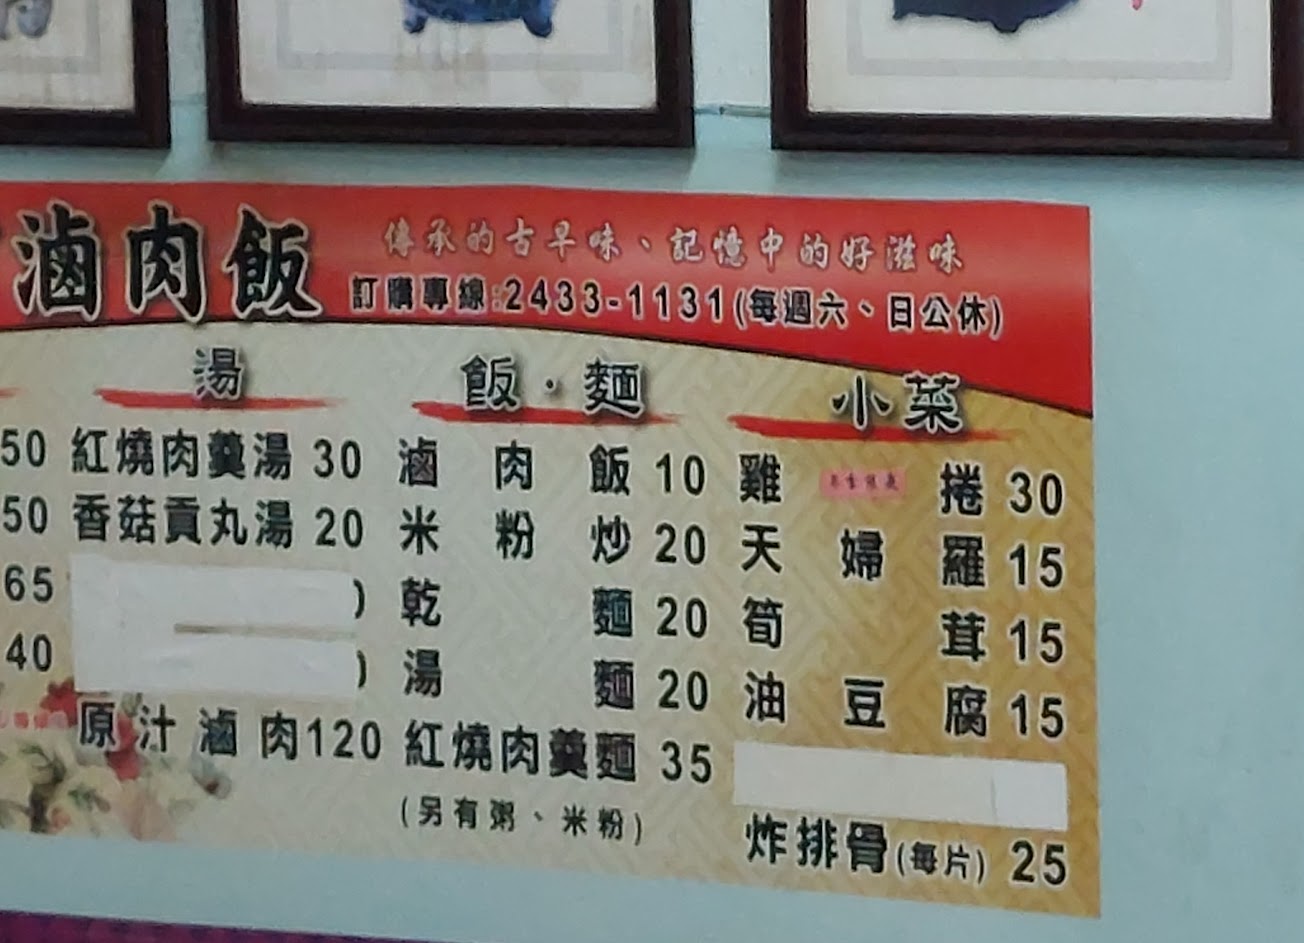 滷肉飯
傳承的古早味、記憶中的好滋味
訂購專線:2433-1131(每週六、日公休)
湯
飯·麵
小菜
50 紅燒肉羹湯 30 滷肉飯 10 雞捲 30
50 香菇貢丸湯 20 米粉炒 20 天婦羅 15
65 ) 乾麵 20 筍茸 15
40 ) 湯麵 20 油豆腐 15
原汁滷肉120 紅燒肉羹麵 35
(另有粥、米粉)
炸排骨(每片) 25